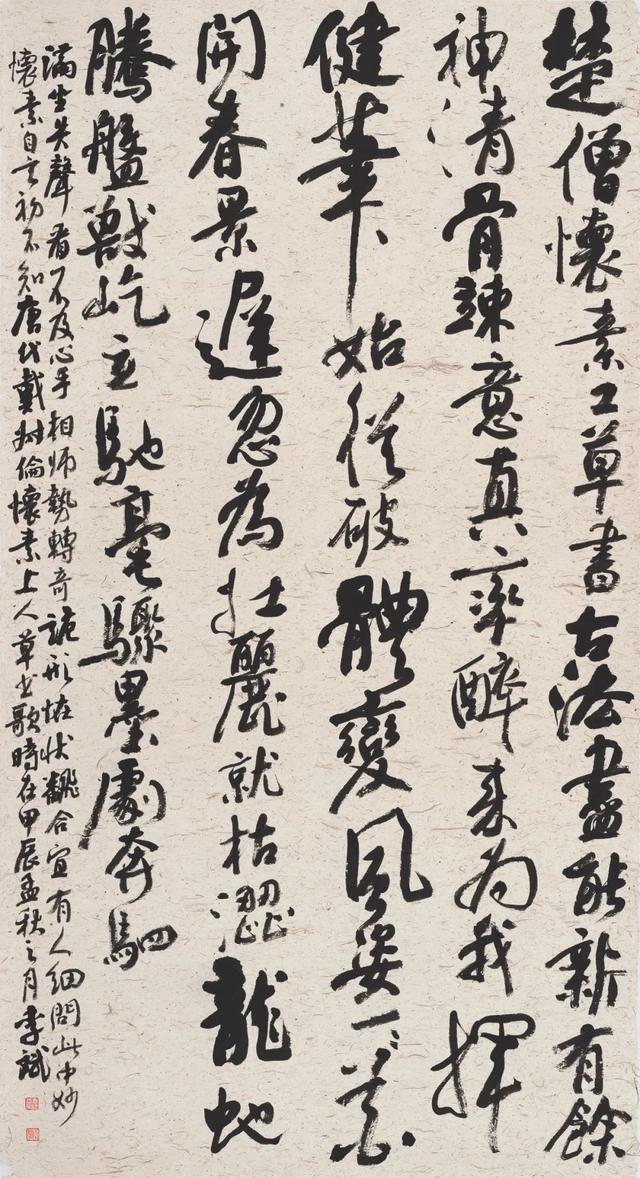 楚僧懷素工草書古法盡能新有餘
神清骨竦意真率醉来为我揮
健筆始從破體變風姿一一花
開春景遲忽為壮麗就枯澀龍虵
騰盤獸屹立馳毫驟墨劇奔駟
滿坐失聲看不及心手相师勢轉奇詭形怪状飜合宜有人细問此中妙
懷素自言初不知唐代戴叔倫懷素上人草书歌時在甲辰孟秋之月李斌